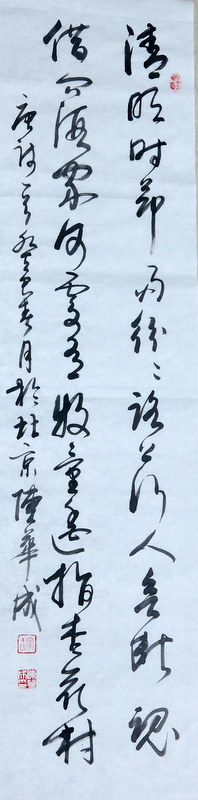 清明时节雨纷纷路上行人欲断魂
借问酒家何处有牧童遥指杏花村
唐诗一首 春月於北京陆华成